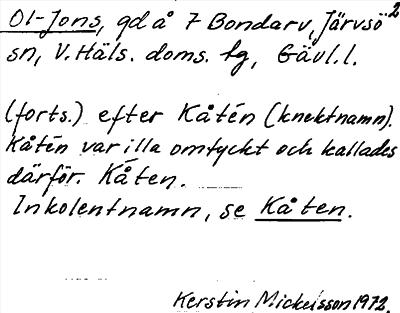 Ol-Jons, gd å 7 Bondarv, Järvsö 2
sn, V. Häls. doms. lg, Gävl. l.
(forts.) efter Kåtén (knektnamn).
Kåtén var illa omtyckt och kallades
därför. Kåten.
Inkolentnamn, se Kåten.
Kerstin Mickelsson 1972.